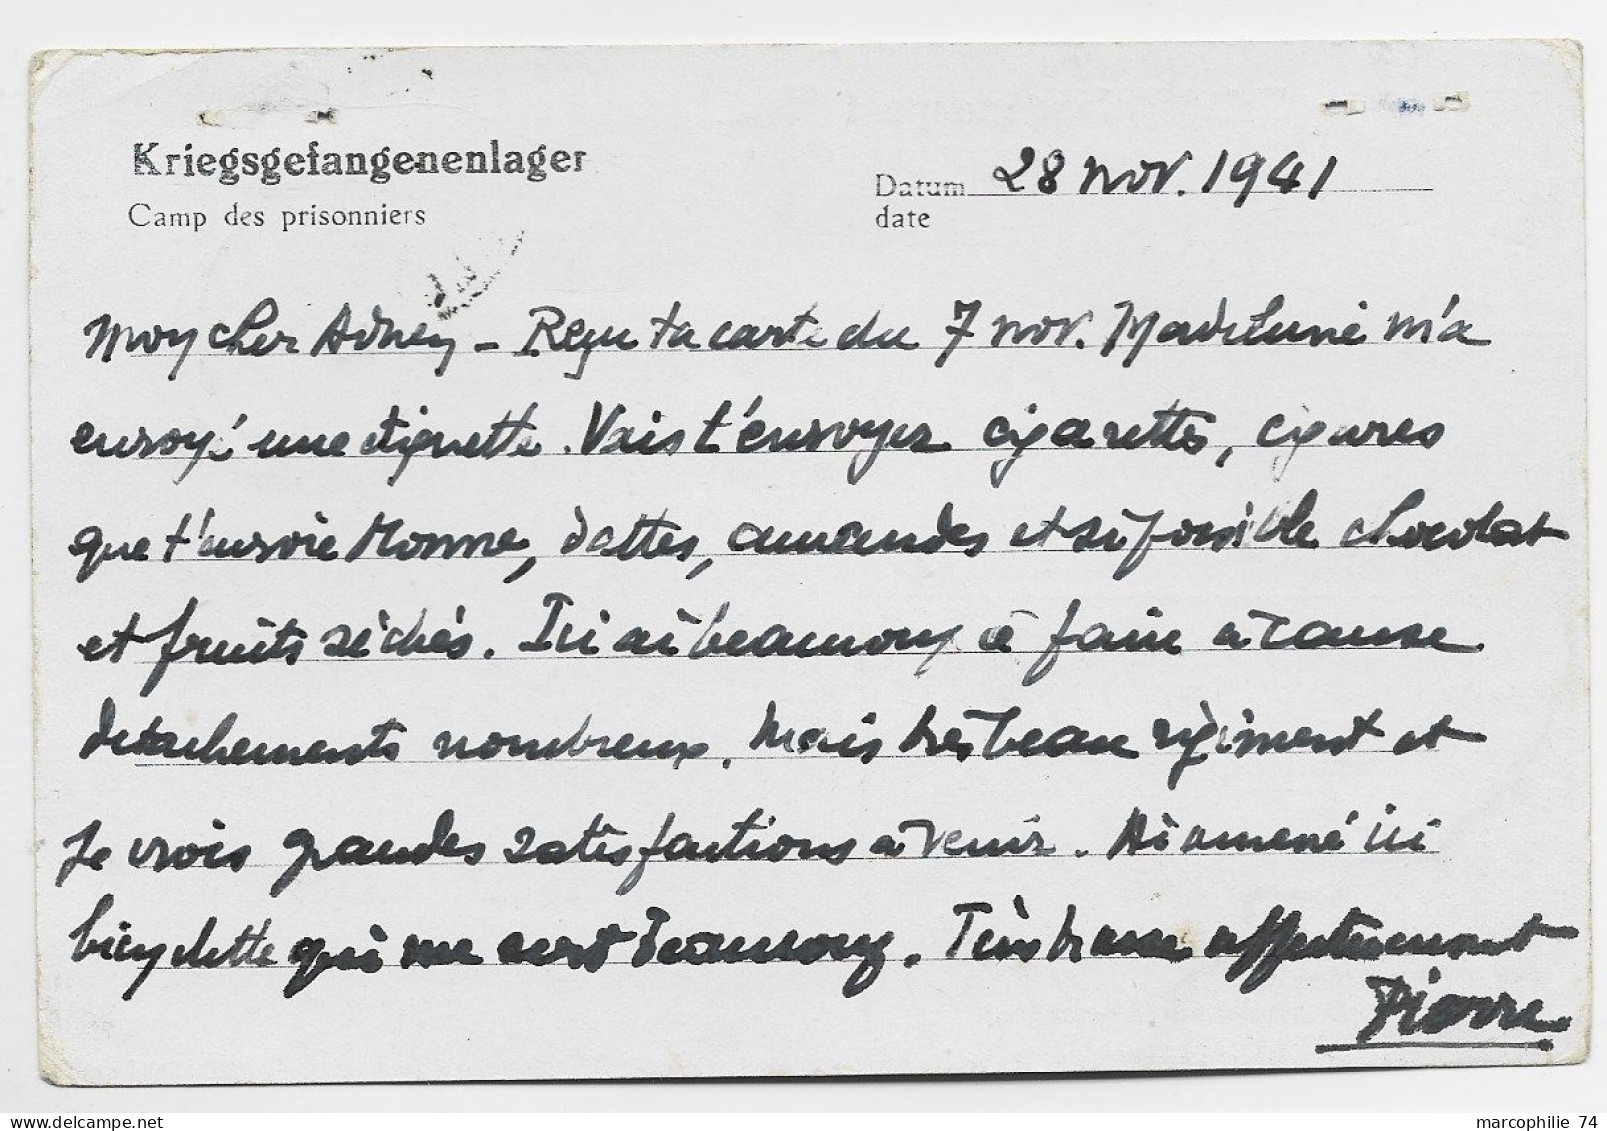 Kriegsgefangenenlager
Camp des prisonniers
Datum 28 nov. 1941
date
Mon cher - Reçu ta carte du 7 nov. m'a
envoyé une etiquette. Vais t'envoyer cigarettes, cigares
que t'envoie Monne, dattes, amandes et si possible chocolat
et fruits séchés. Ici ai beaucoup à faire à cause
detachements nombreux. Mais très beau régiment et
je crois grandes satisfactions à venir. Ai amené ici
bicyclette qui me sert beaucoup. T'embrasse affectueusement
Pierre
marcophilie 74